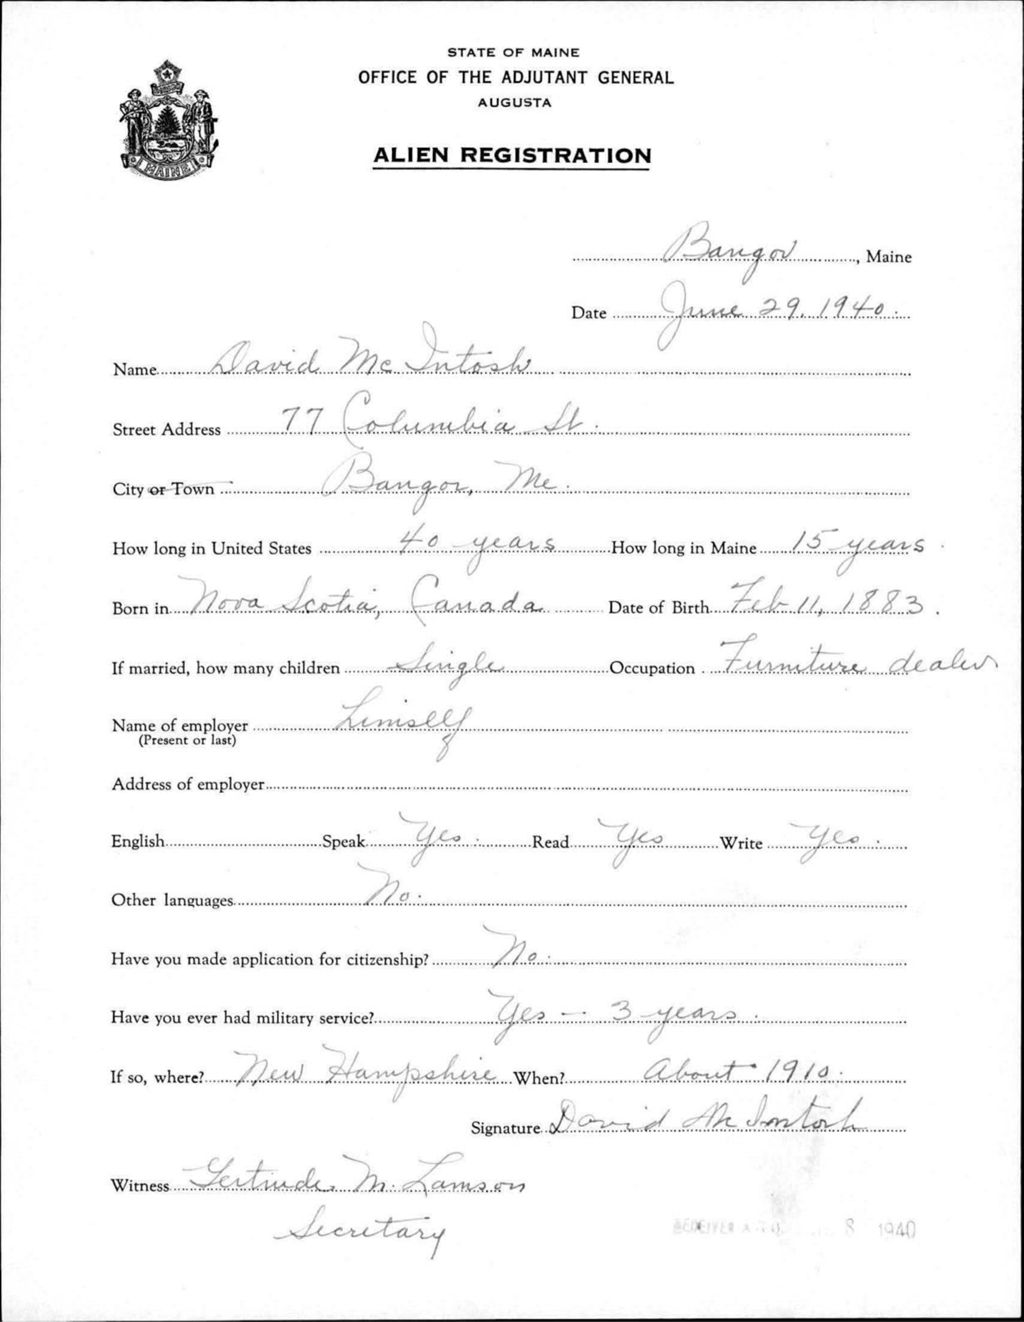 STATE OF MAINE
OFFICE OF THE ADJUTANT GENERAL
AUGUSTA
ALIEN REGISTRATION
MAINE
Bangor, Maine
Date June 29, 1940.
Name David McIntosh
Street Address 77 Columbia St.
City or Town Bangor, Me.
How long in United States 40 years How long in Maine 15 years.
Born in Nova Scotia, Canada Date of Birth Feb 11, 1883.
If married, how many children Single Occupation Furniture dealer
Name of employer himself
(Present or last)
Address of employer
English Speak Yes. Read Yes Write Yes.
Other languages No.
Have you made application for citizenship? No.
Have you ever had military service? Yes - 3 years.
If so, where? New Hampshire When? About 1910.
Signature David McIntosh
Witness Gertrude M. Lamson
Secretary
8 1940